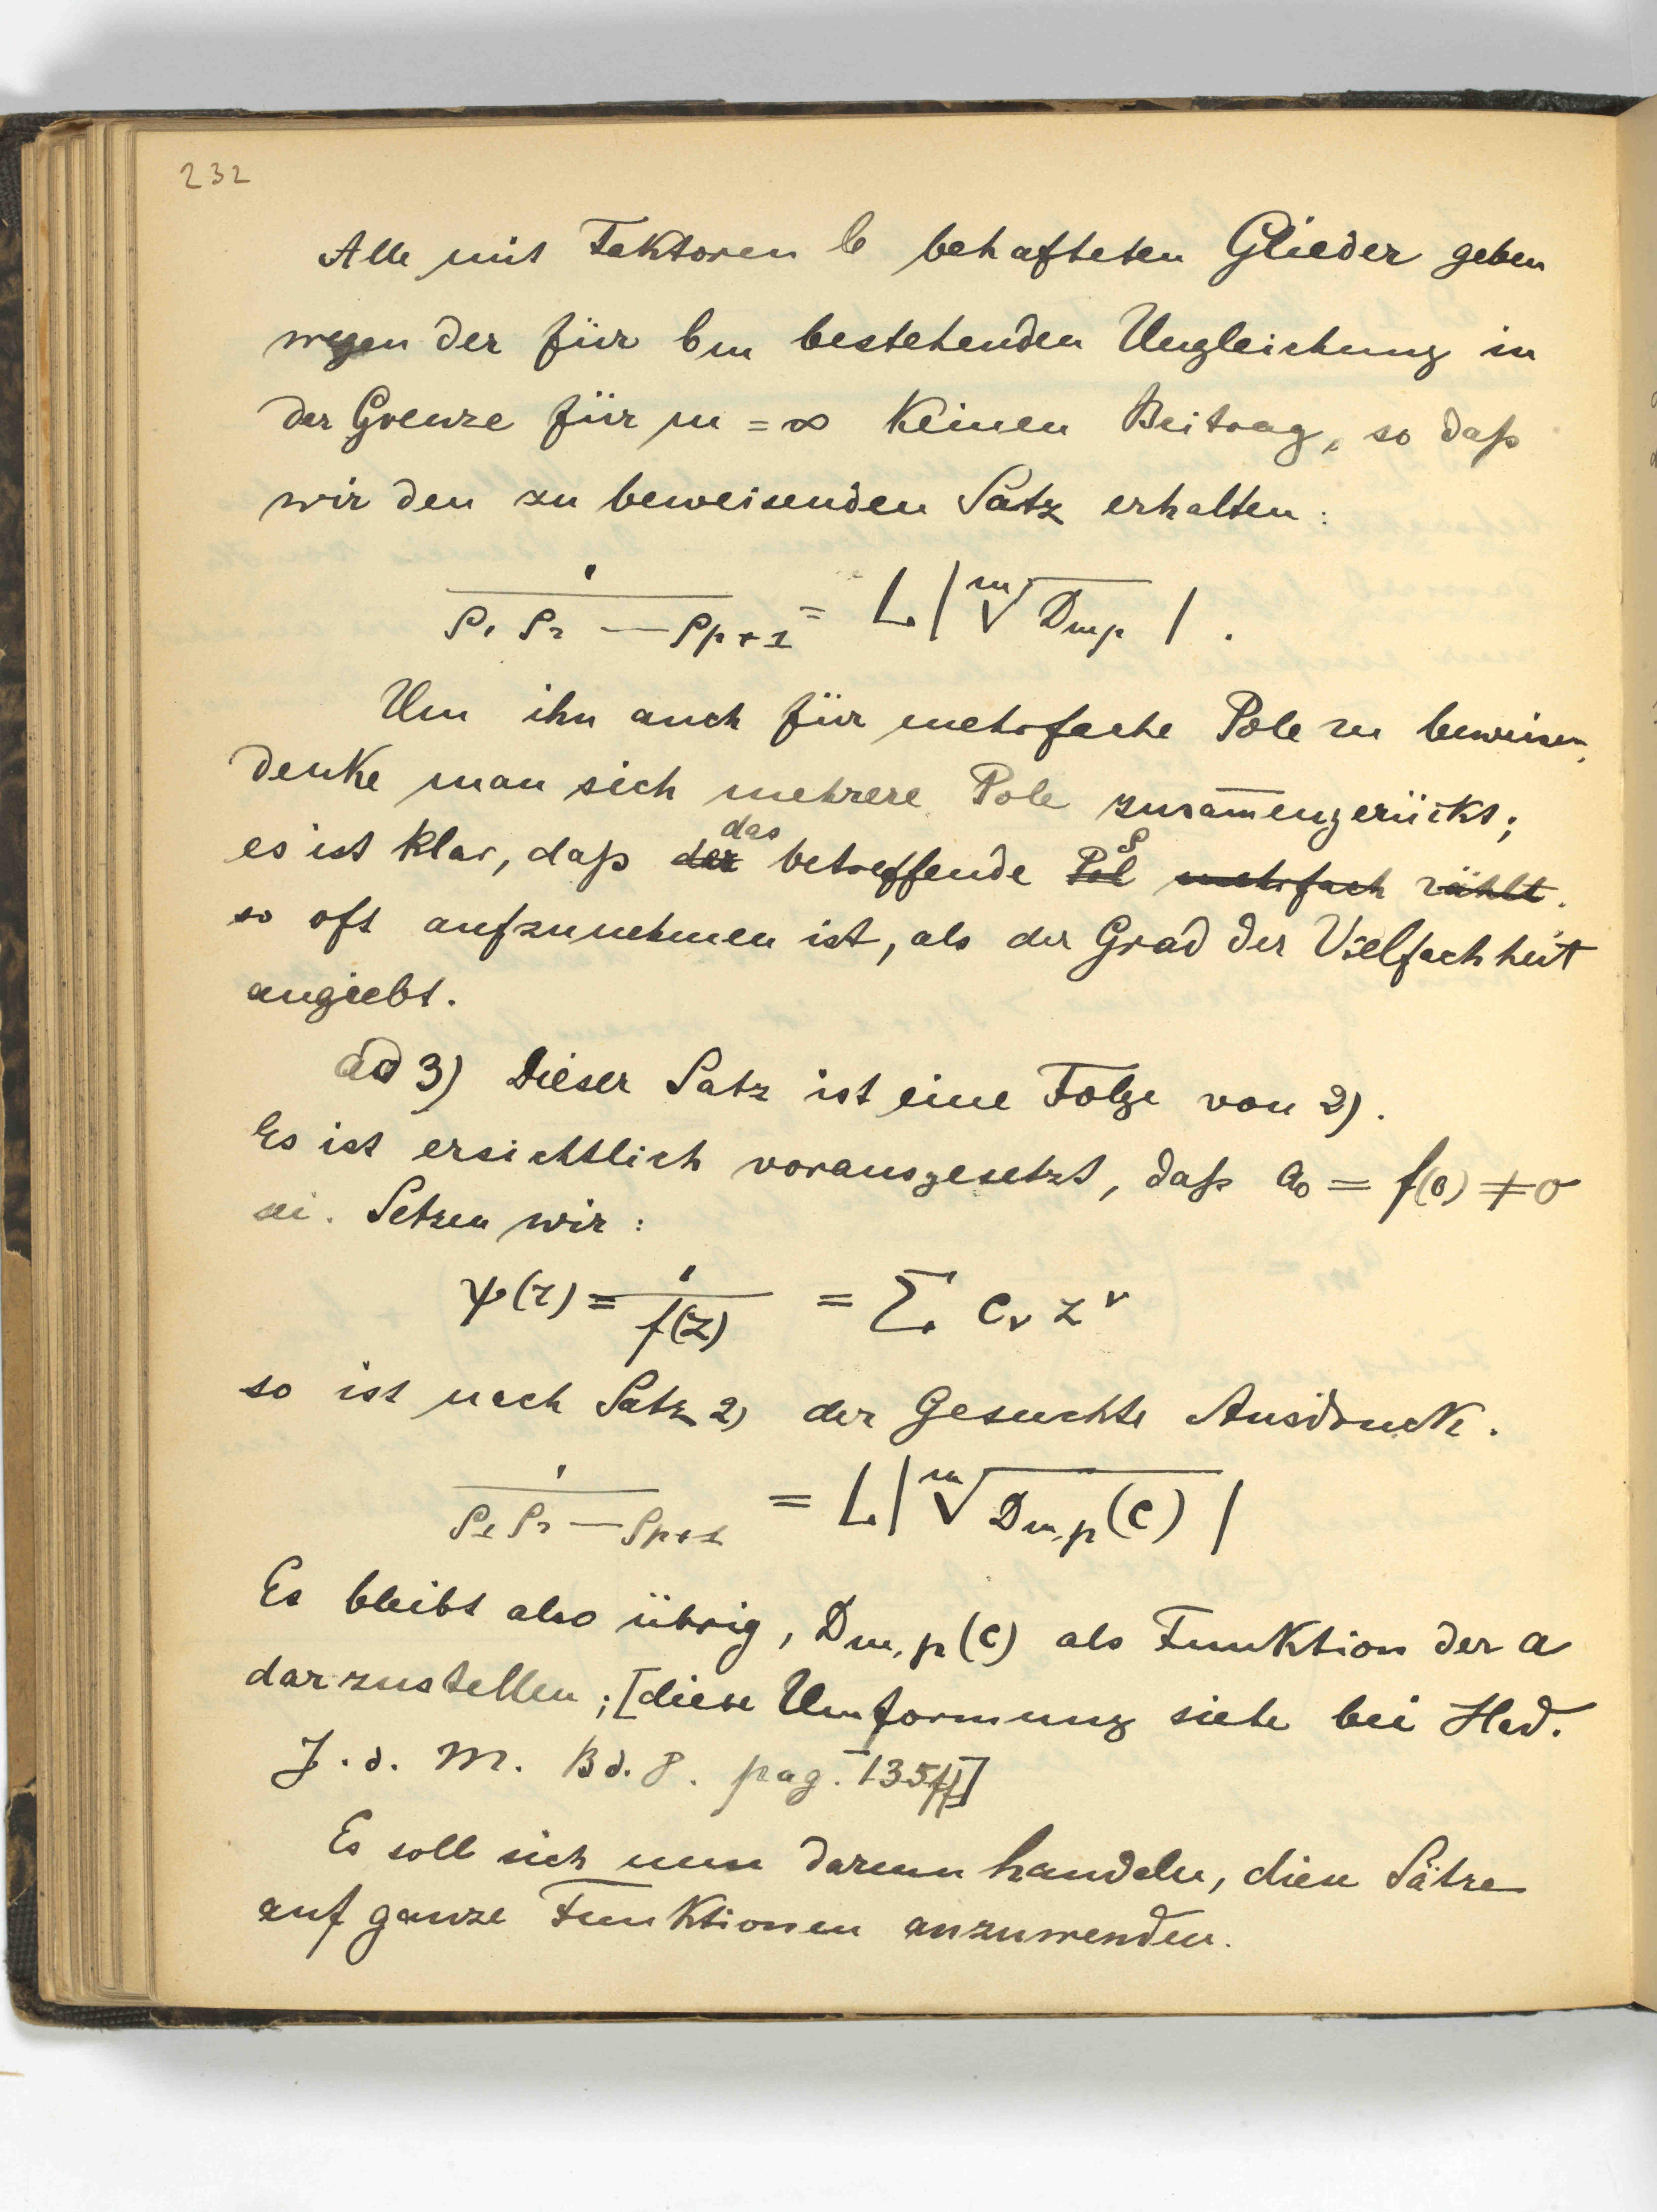 232
Alle mit Faktoren b behafteten Glieder geben
wegen der für bm bestehenden Ungleichung in
der Grenze für m = ∞ keinen Beitrag, so daß
wir den zu beweisenden Satz erhalten:
1/(ρ₁ ρ₂ — ρp+1) = L |ᵐ√Dmp| .
Um ihn auch für mehrfache Pole zu beweisen,
denke man sich mehrere Pole zusam̅engerückt;
es ist klar, daß der das betreffende Pol ρ mehrfach zählt.
so oft aufzunehmen ist, als der Grad der Vielfachheit
angiebt.
ad 3) Dieser Satz ist eine Folge von 2).
Es ist ersichtlich vorausgesetzt, daß a₀ = f(0) ≠ 0
sei. Setzen wir:
ψ(z) = 1/f(z) = Σ cᵥ zᵛ
so ist nach Satz 2) der Gesuchte Ausdruck.
1/(ρ₁ ρ₂ — ρp+1) = L |ᵐ√Dm,p(c)|
Es bleibt also übrig, Dm,p(c) als Funktion der a
darzustellen; [diese Umformung siehe bei Had.
J. d. M. Bd. 8. pag. 135ff]
Es soll sich nun darum handeln, diese Sätze
auf ganze Funktionen anzuwenden.